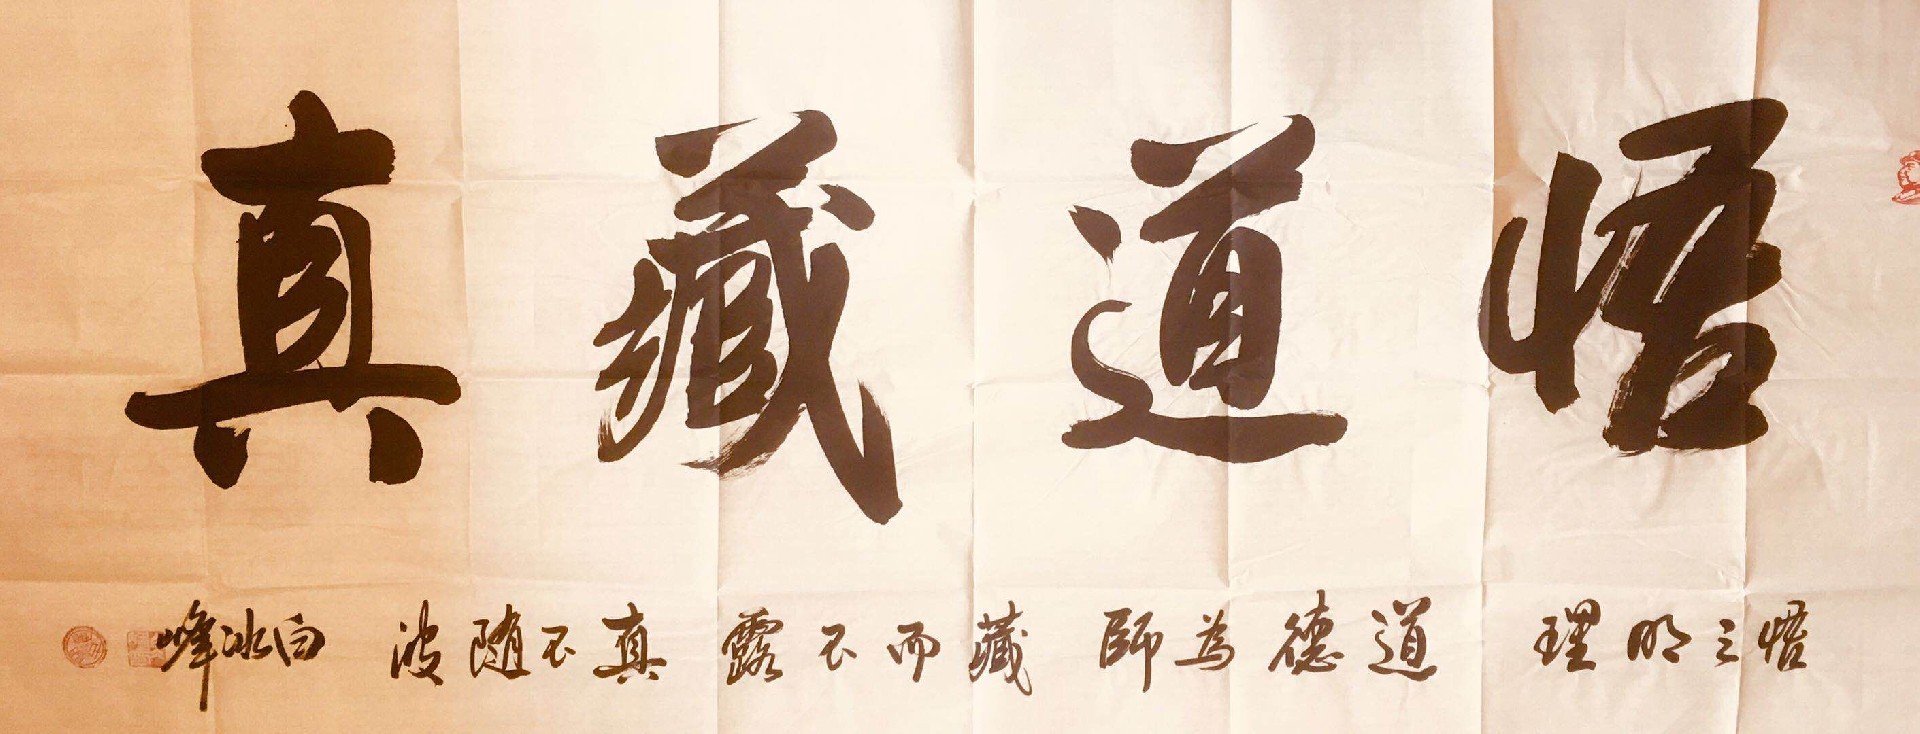 悟道藏真
悟之明理 道德為師 藏而不露 真不随波 白冰峰